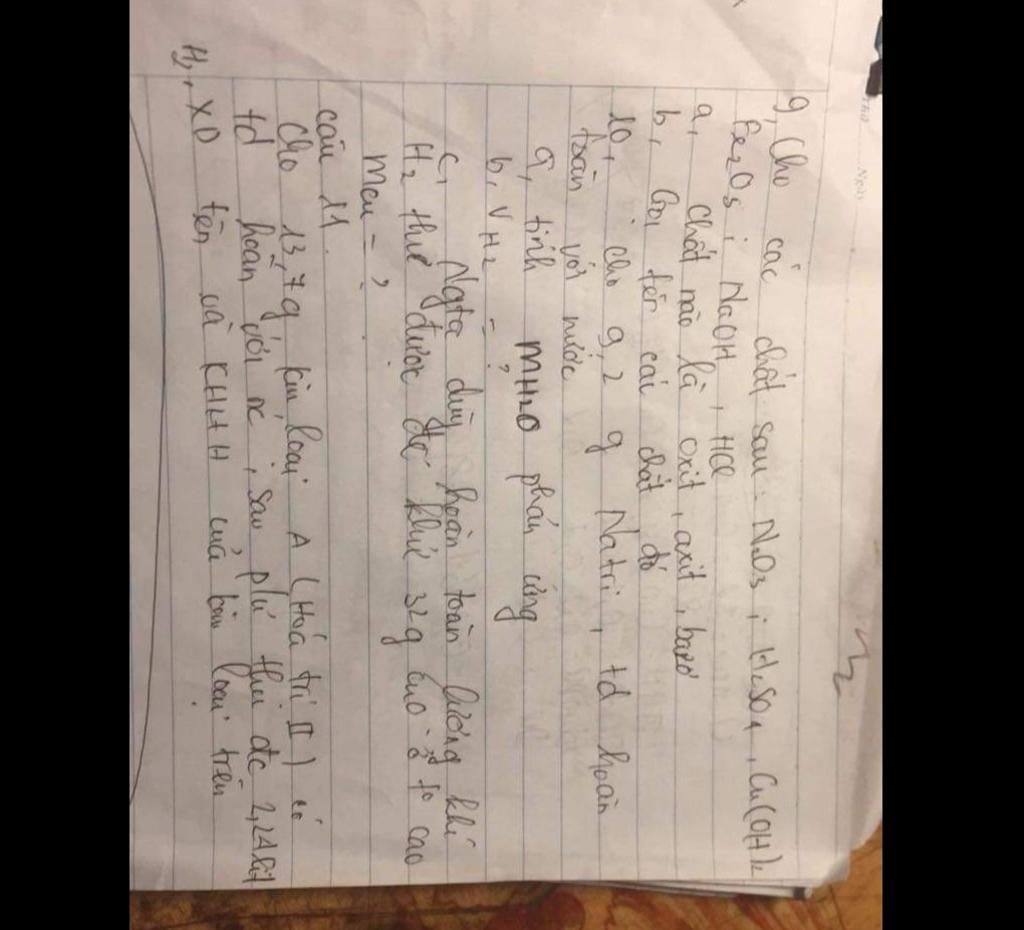 9, Cho các chất sau: N2O3; H2SO4, Cu(OH)2
Fe2O3; NaOH, HCl
a, chất nào là oxit, axit, bazơ
b, Gọi tên các chất đó
10, cho 9,2 g Natri, td hoàn
toàn với nước
a, tính mH2O phản ứng
b, VH2 = ?
c, Ngta dùng hoàn toàn lượng khí
H2 thu được để khử 32g CuO ở to cao
mcu = ?
câu 11.
Cho 13,7g kim loại A (Hoá trị II) có
td hoàn với nc, sau phứ thu đc 2,24 lít
H2, XD tên và KHHH của kim loại trên